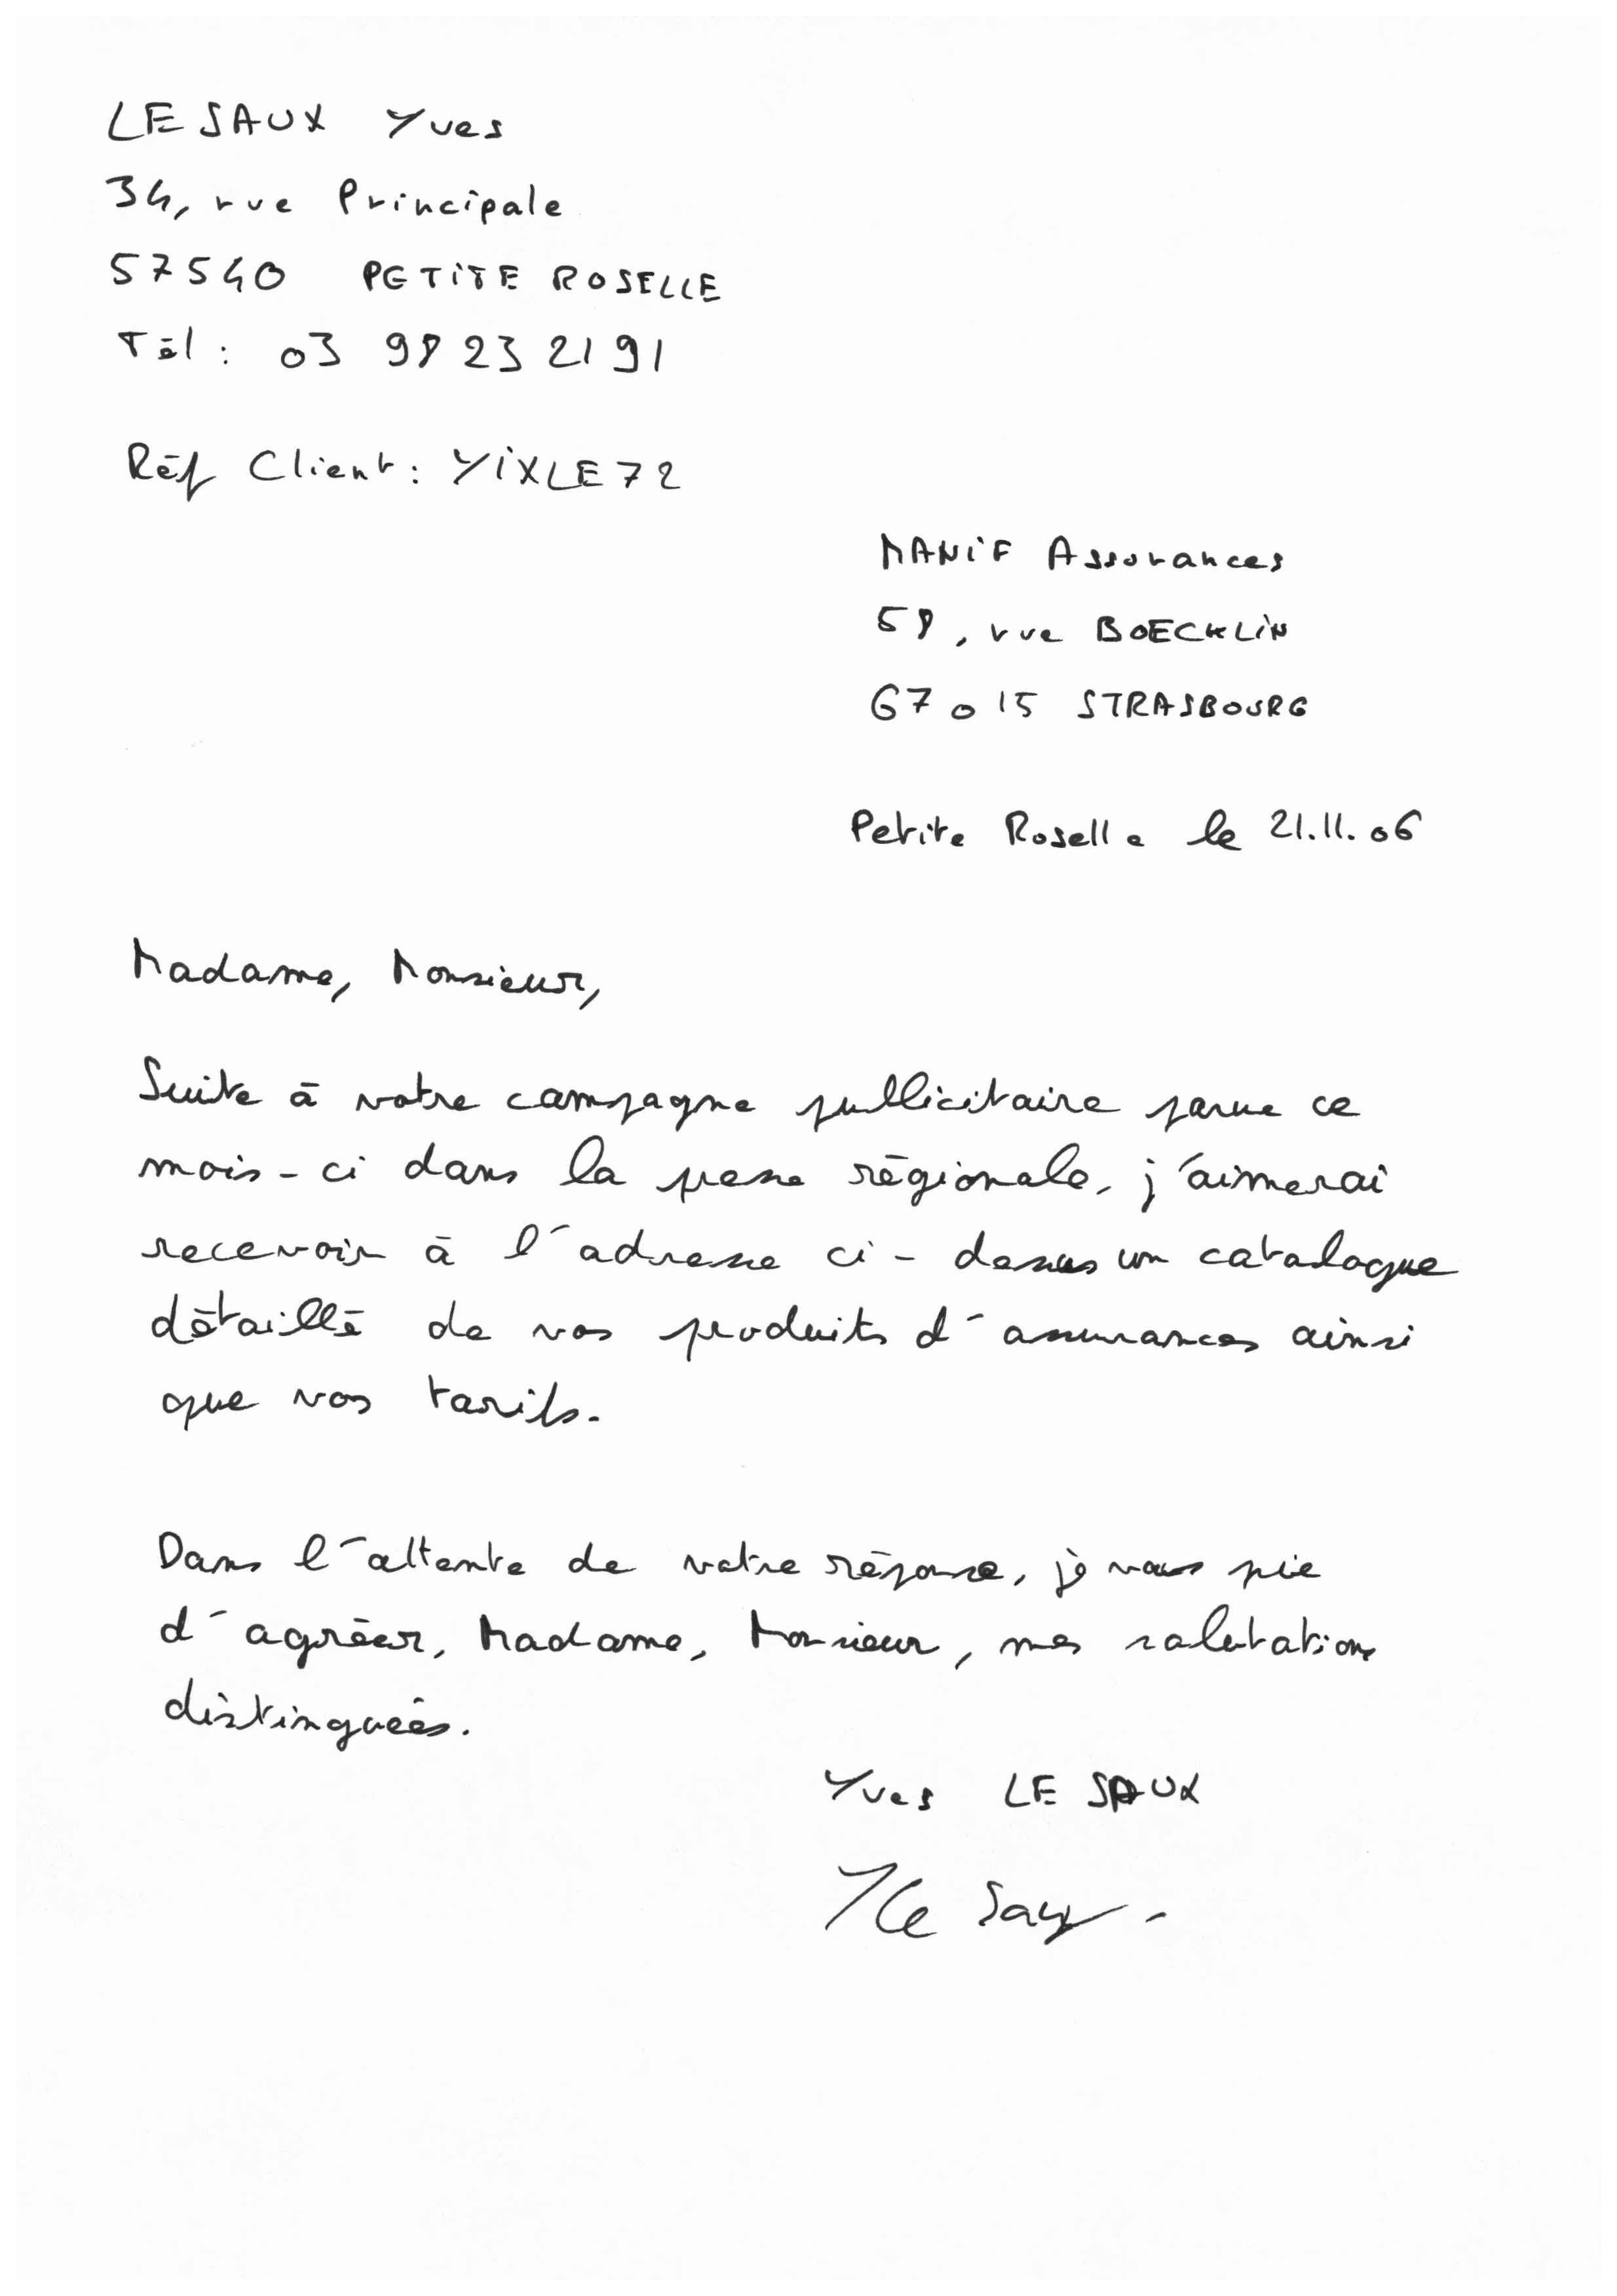 LE SAUX Yves
34, rue Principale
57540 PETITE ROSELLE
Tél : 03 98 23 21 91
Réf Client : YIXLE72
MANIF Assurances
58, rue BOECKLIN
67015 STRASBOURG
Petite Roselle le 21.11.06
Madame, Monsieur,
Suite à votre campagne publicitaire parue ce
mois-ci dans la presse régionale, j'aimerai
recevoir à l'adresse ci-dessus un catalogue
détaillé de vos produits d'assurances ainsi
que vos tarifs.
Dans l'attente de votre réponse, je vous prie
d'agréer, Madame, Monsieur, mes salutations
distinguées.
Yves LE SAUX
Y Le Saux